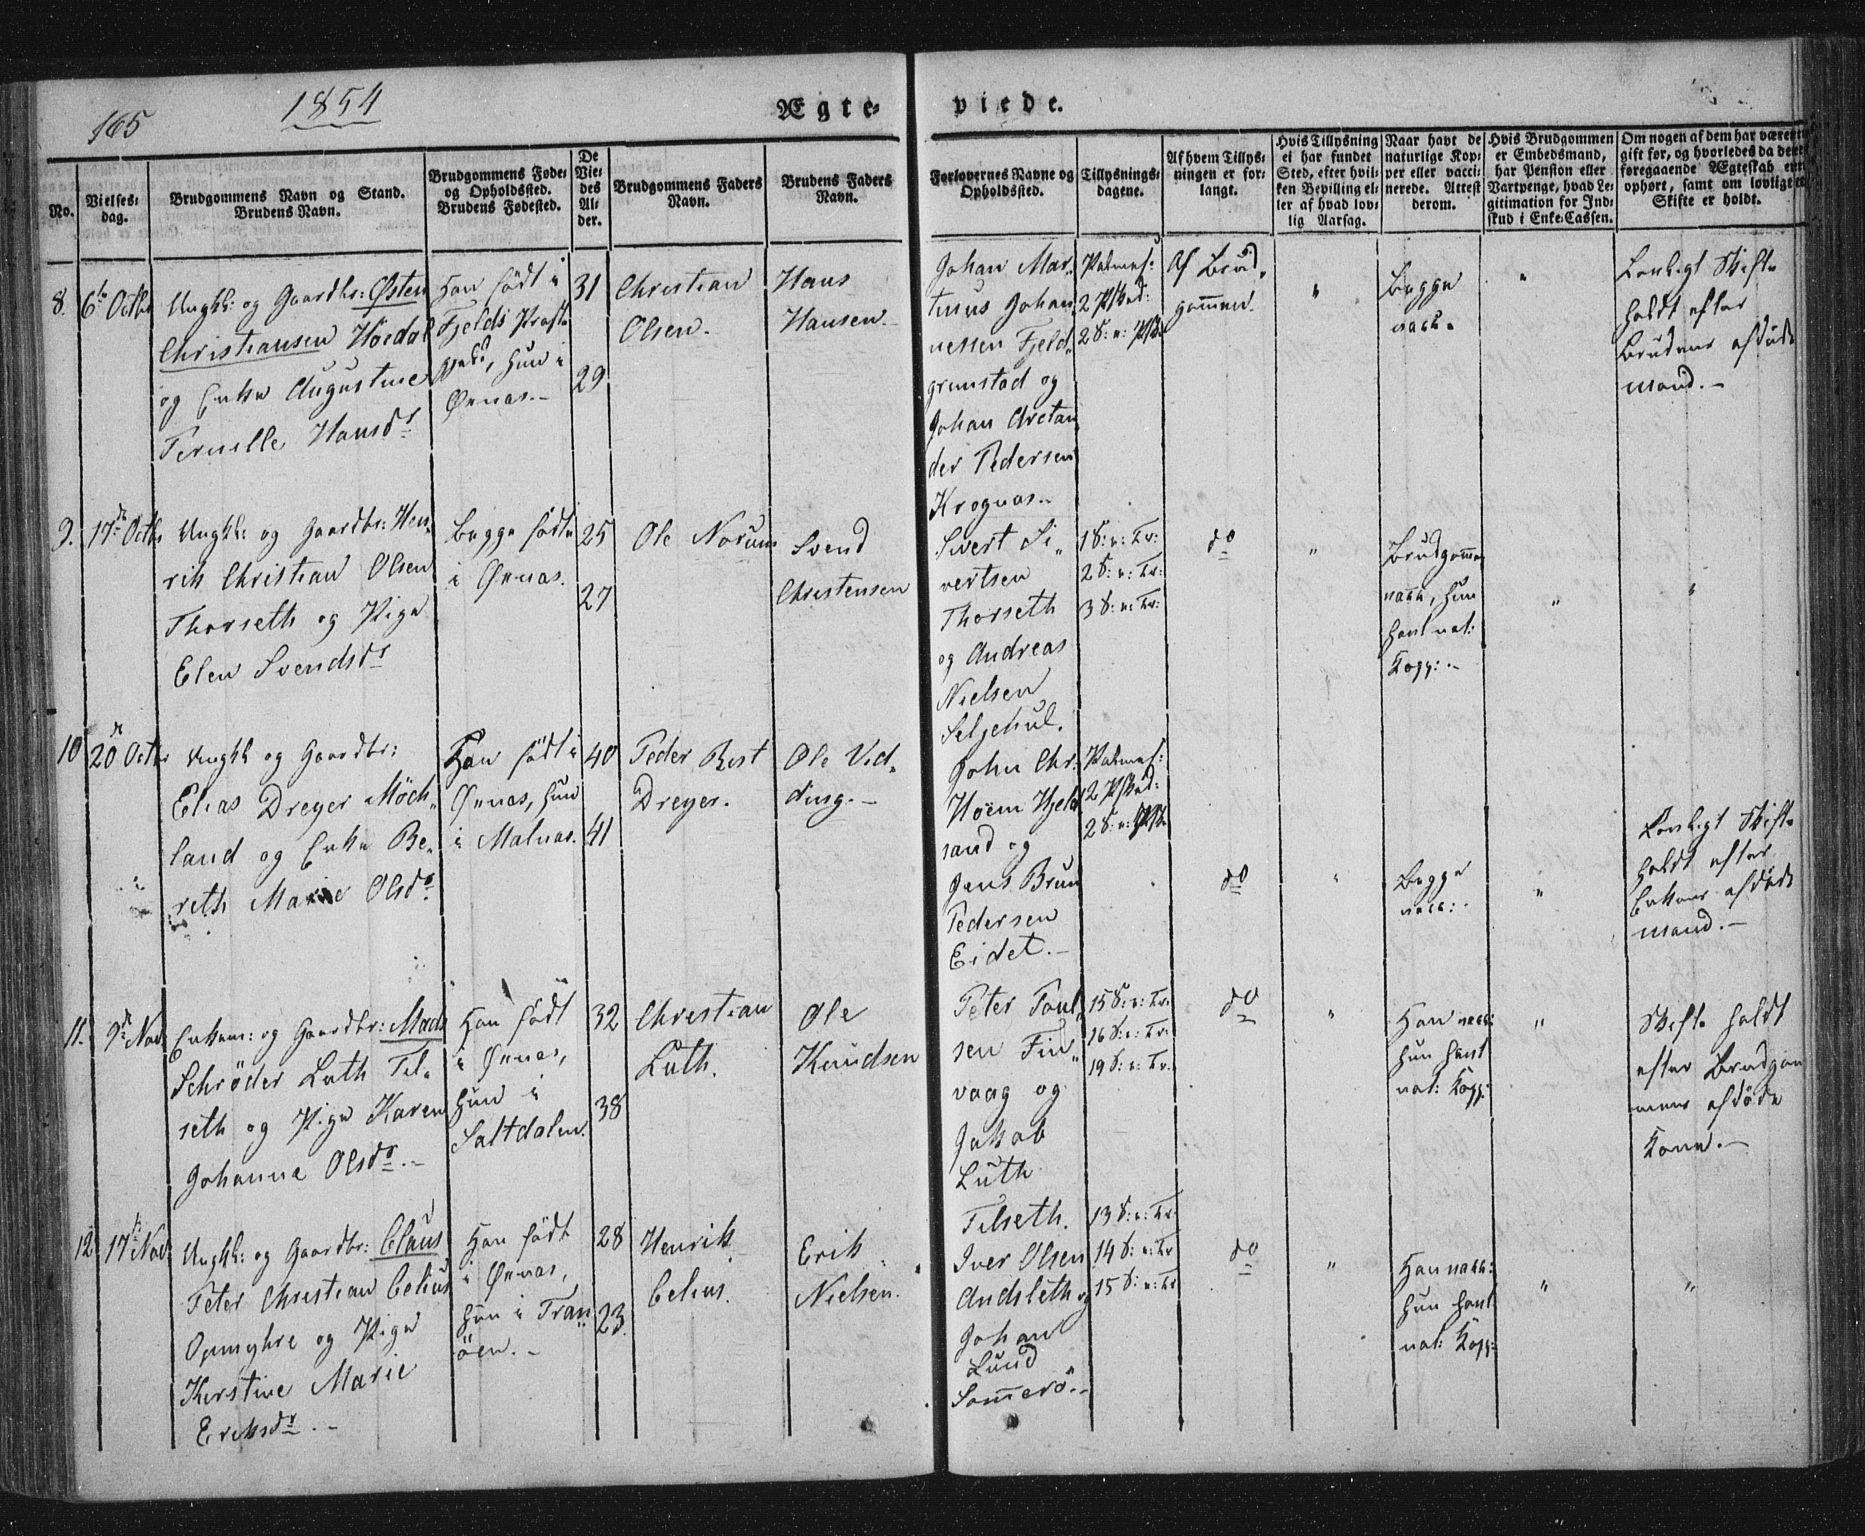 165
1854
Ægte-
viede.
No.
Vielses-
dag.
Brudgommens Navn og Stand.
Brudens Navn.
Brudgommens Føde-
og Opholdssted.
Brudens Fødested.
De
Vie-
des
Al-
der.
Brudgommens Faders
Navn.
Brudens Faders
Navn.
Forlovernes Navne og
Opholdssted.
Tillysnings-
dagene.
Af hvem Tillys-
ningen er for-
langt.
Hvis Tillysning
ei har fundet
Sted, efter hvil-
ken Bevilling el-
ler af hvad lov-
lig Aarsag.
Naar havt de
naturlige Kop-
per eller vacci-
nerede. Attest
derom.
Hvis Brudgommen
er Embedsmand,
har Pension eller
Vartpenge, hvad Le-
gitimation for Ind-
skud i Enke-Cassen.
Om nogen af dem har været
gift før, og hvorledes da dette
foregaaende Ægteskab er
ophørt, samt om lovligt
Skifte er holdt.
8.
6te Octbr
Ungk: og Gaardbr: Østen
Christiansen Höedal
og Enke Augustine
Pernille Hansdr
Han födt i
Fjelds Præste
gjeld, hun i
Öxnæs.-
31
29
Christian
Olsen.
Hans
Hansen.
Johan Mar-
tinus Johan
nessen Fjeld
grunstad og
Johan Arctan
der Pedersen
Krognæs.-
Palmes:
2 Pskd:
2 S: e: Pske
Af Brud-
gommen.
"
Begge
vacc.
"
Lovligt Skifte
holdt efter
Brudens afdöde
mand.-
9.
17de Octbr
Ungk: og Gaardbr: Hen-
rik Christian Olsen
Thorseth og Pige
Elen Svendsdr
Begge födte
i Öxnæs.
25
27
Ole Norum
Svend
Christensen
Sivert Si-
vertsen
Thorseth
og Andreas
Nielsen
Seljehul.
1 S: e: Tr:
2 S: e: Tr:
3 S: e: Tr:
do
"
Brudgommen
vacc, hun
havt nat:
Kopp:-
"
"
10
20de Octbr
Ungk og Gaardbr:
Elias Dreyer Möck-
land og Enke Be-
reth Marie Olsdr
Han födt i
Öxnæs, hun
i Malnæs.
40
41
Peder Rist
Dreyer.
Ole Vid-
ding.-
John Chr:
Höem Hjeld
sand og
Jens Brun
Pedersen
Eidet.-
Palmes:
2 Pskd:
2 S: e: Pske
do
"
Begge
vacc:
"
Lovligt Skifte
holdt efter
Enkens afdöde
mand.-
11.
9de Nov.
Enkem: og Gaardbr: Mads
Schröder Luth Til-
seth og Pige Karen
Johanna Olsdr.-
Han födt
i Öxnæs,
hun i
Saltdalen.
32
38
Christian
Luth.
Ole
Knudsen
Peter Poul-
sen Fin-
vaag og
Jakob
Luth
Tilseth.
15 S: e: Tr:
16 S: e: Tr:
19 S: e: Tr.
do
"
Han vacc:
hun havt
nat: Kopp:
"
Skifte holdt
efter Brudgom
mens afdöde
Kone.-
12
17de Nov.
Ungk: og Gaardbr: Claus
Peter Christian Celius
Opmyhre og Pige
Kirstine Marie
Eriksdr.-
Han födt
i Öxnæs,
hun i Tran
öen.-
28
23.
Henrik
Celius.
Erik
Nielsen.
Iver Olsen
Andsleth og
Johan
Lund
Sommerö.-
13 S: e: Tr:
14 S: e: Tr
15 S: e: Tr
do
"
Han vacc:
hun havt
nat: Kopp:
"
"